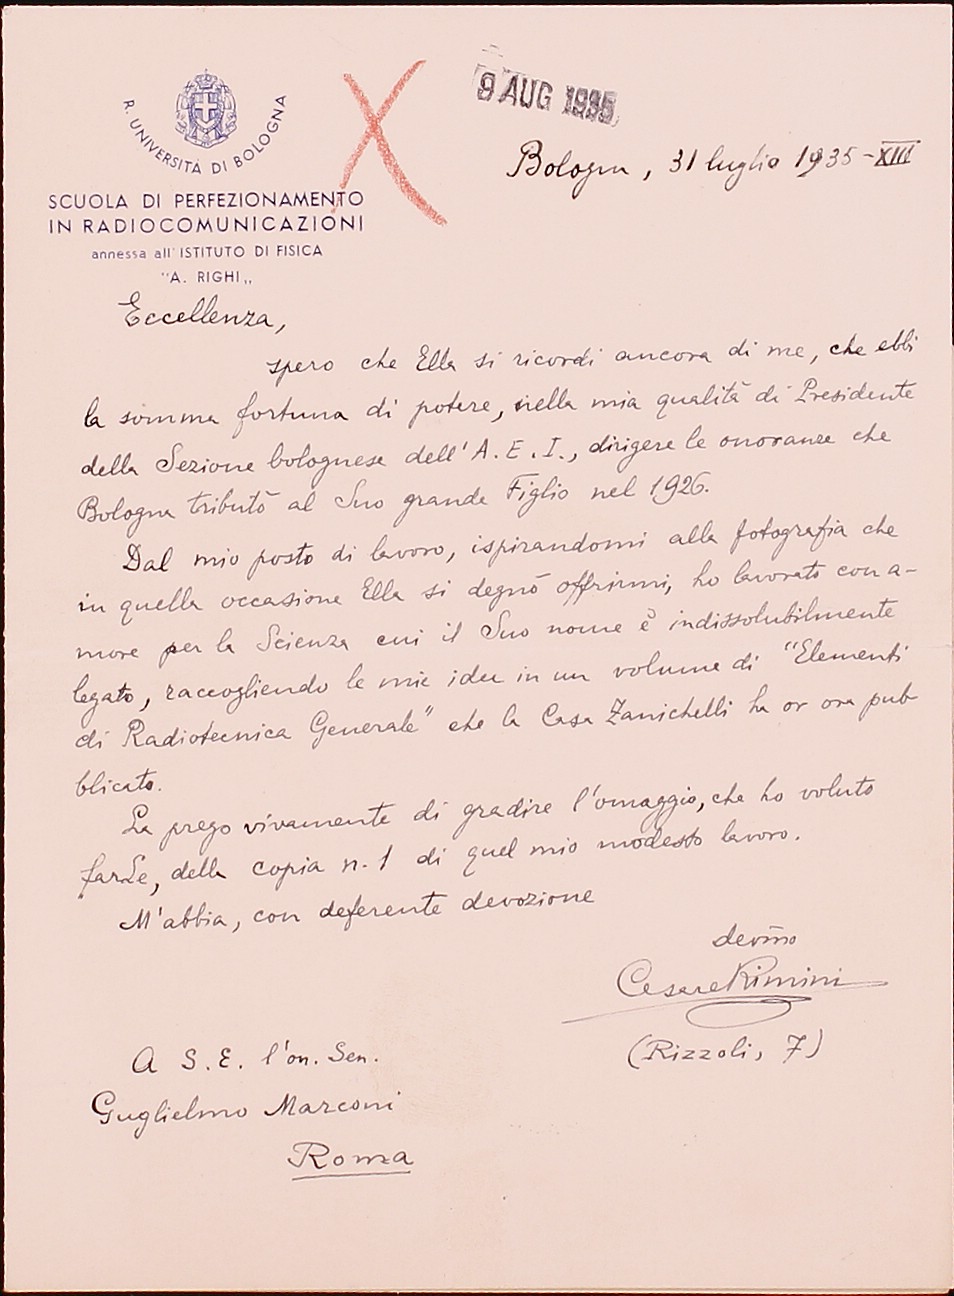 R. UNIVERSITÀ DI BOLOGNA
SCUOLA DI PERFEZIONAMENTO
IN RADIOCOMUNICAZIONI
annessa all'ISTITUTO DI FISICA
"A. RIGHI„
9 AUG 1935
Bologna, 31 luglio 1935-XIII
Eccellenza,
spero che Ella si ricordi ancora di me, che ebbi
la somma fortuna di potere, nella mia qualità di Presidente
della Sezione bolognese dell'A.E.I., dirigere le onoranze che
Bologna tributò al Suo grande Figlio nel 1926.
Dal mio posto di lavoro, ispirandomi alla fotografia che
in quella occasione Ella si degnò offrirmi, ho lavorato con a-
more per la Scienza cui il Suo nome è indissolubilmente
legato, raccogliendo le mie idee in un volume di "Elementi
di Radiotecnica Generale" che la Casa Zanichelli ha or ora pub-
blicato.
La prego vivamente di gradire l'omaggio, che ho voluto
farLe, della copia n. 1 di quel mio modesto lavoro.
M'abbia, con deferente devozione
dev̅mo
Cesare Rimini
(Rizzoli, 7)
A S.E. l'on. Sen.
Guglielmo Marconi
Roma